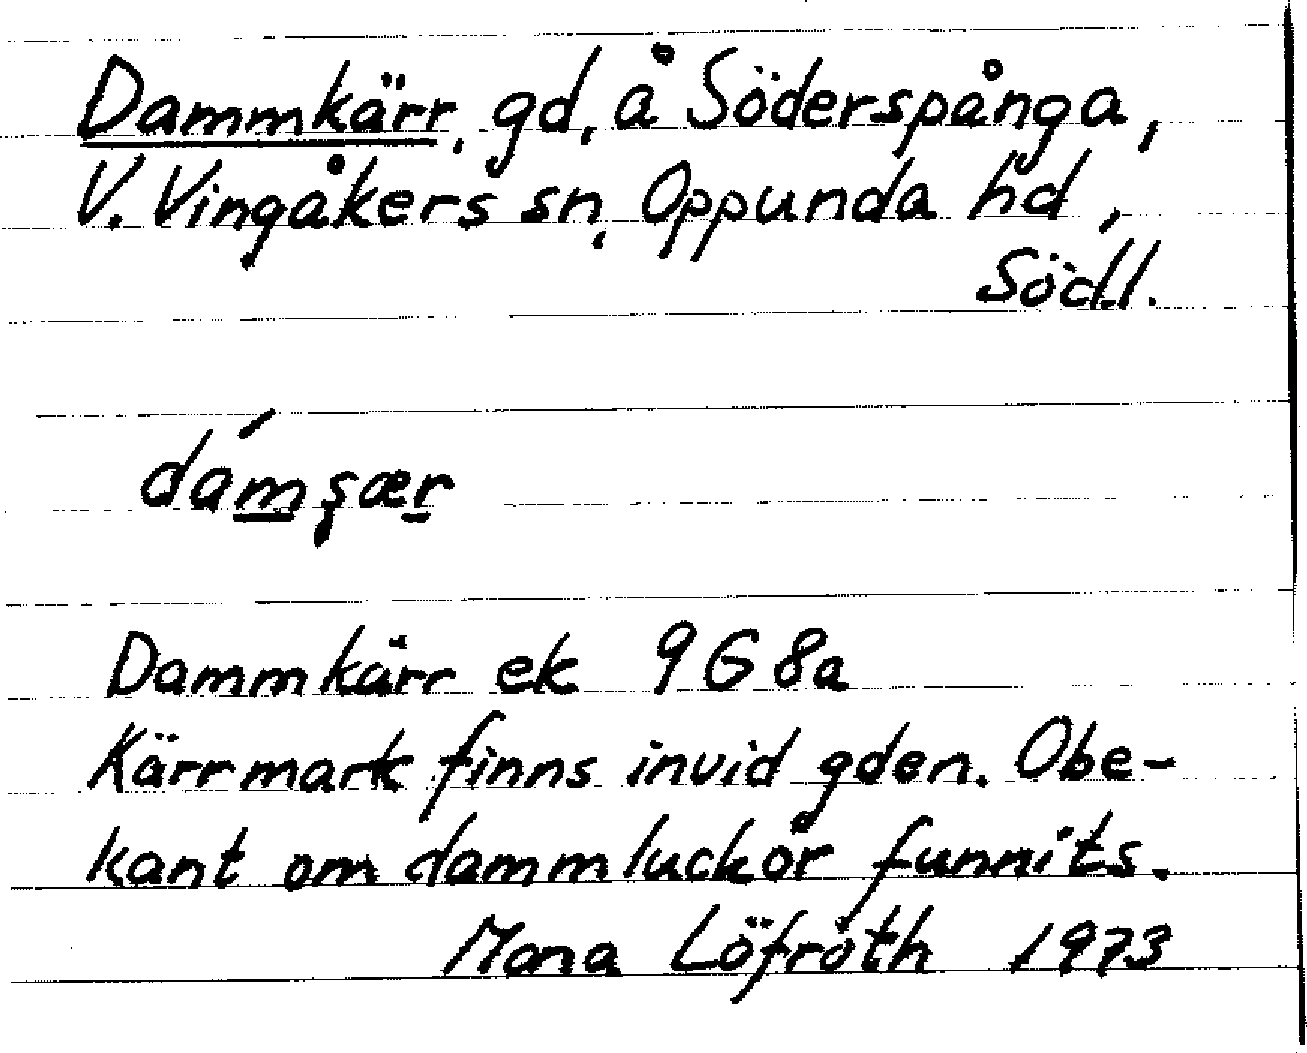 Dammkärr, gd, å Söderspånga,
V. Vingåkers sn, Oppunda hd,
Södl.
dámşær
Dammkärr ek 9G8a
Kärrmark finns invid gden. Obe-
kant om dammluckor funnits.
Mona Löfroth 1973